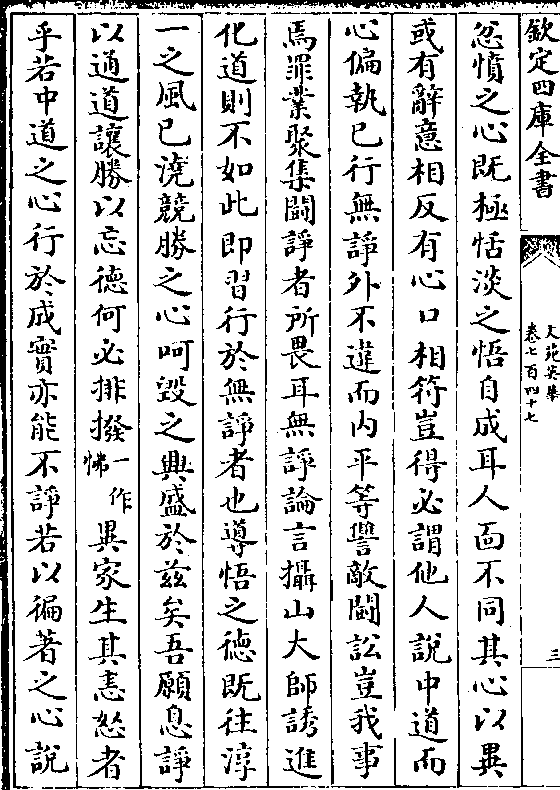 欽定四庫全書
文苑英華
卷七百四十七
三
忿憤之心既極恬淡之悟自成耳人面不同其心以異
或有辭意相反有心口相符豈得必謂他人說中道而
心偏執已行無諍外不違而內平等讐敵鬭訟豈我事
焉罪業聚集鬭諍者所畏耳無諍論言攝山大師誘進
化道則不如此即習行於無諍者也導悟之德既往淳
一之風已澆競勝之心呵毀之興盛於茲矣吾願息諍
以通道讓勝以忘德何必排撥一作悕異家生其恚怒者
乎若中道之心行於成實亦能不諍若以徧著之心說